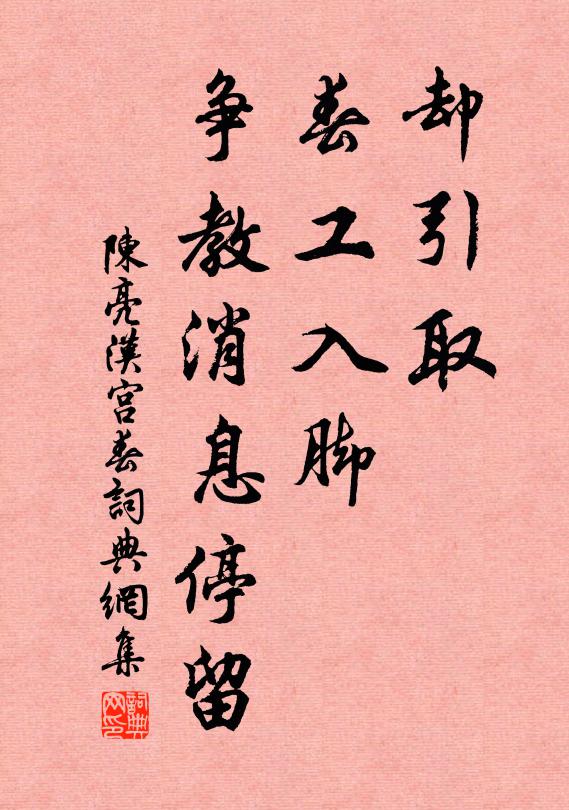 却引取
春工入脚
争教消息停留
陳亮漢宫春詞典網集
詞典网印